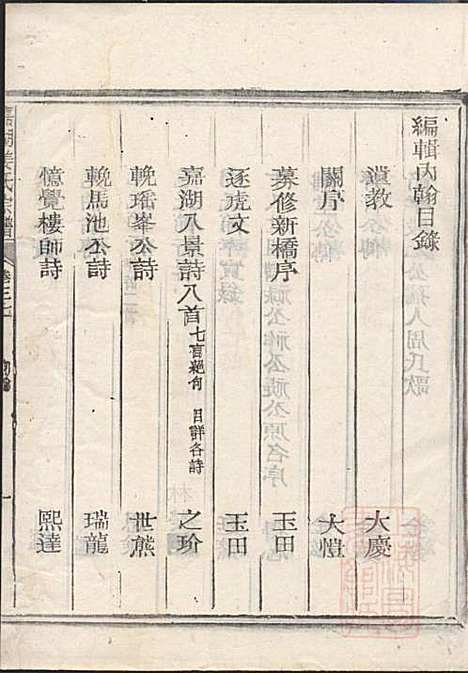 編輯內翰目錄
遺教 大慶
關序 大愷
募修新橋序 玉田
逐虎文 玉田
嘉湖八景詩八首 七言絕句 目詳各詩 之玠
輓瑤峯公詩 世熊
輓馬池公詩 瑞龍
憶覺樓師詩 熙達
氏宗譜